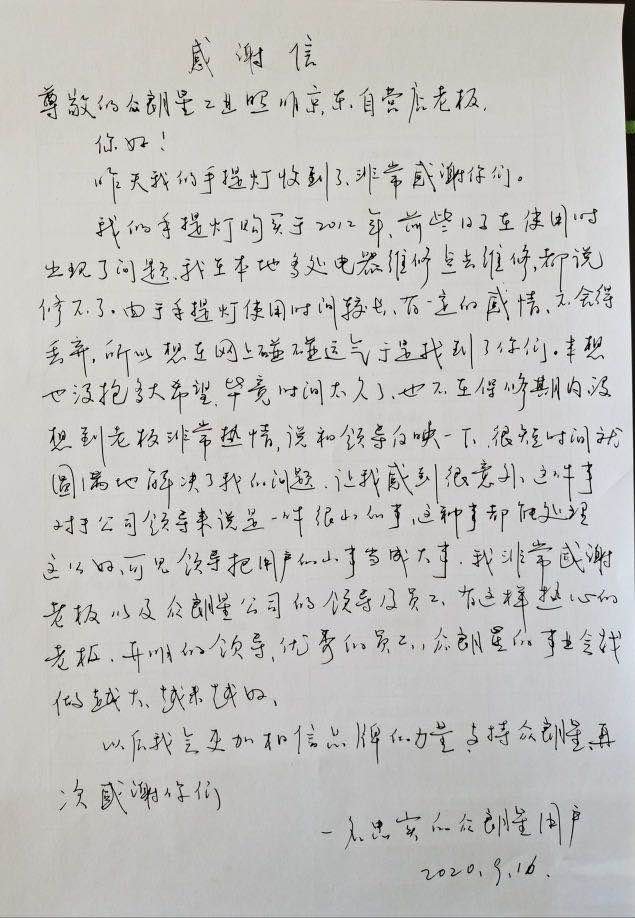 感谢信
尊敬的众朗星工业照明京东自营店老板,
你好!
昨天我们手提灯收到了、非常感谢你们。
我们手提灯购买于2012年,前些日子在使用时
出现了问题、我在本地多处电器维修点去维修,都说
修不了。由于手提灯使用时间较长、有一定的感情、不舍得
丢弃,所以想在网上碰碰运气于是找到了你们。本想
也没抱多大希望,毕竟时间太久了、也不在保修期内,没
想到老板非常热情,说和领导反映一下、很短时间就
圆满地解决了我们问题、让我感到很意外、这件事
对于公司领导来说是一件很小的事,这种事都能处理
这么好、可见领导把用户的小事当成大事、我非常感谢
老板以及众朗星公司的领导及员工、有这样热心的
老板、开明的领导、优秀的员工、众朗星的事业会越
做越大、越来越好、
以后我会更加相信品牌的力量,支持众朗星、再
次感谢你们
一名忠实的众朗星用户
2020.9.16.